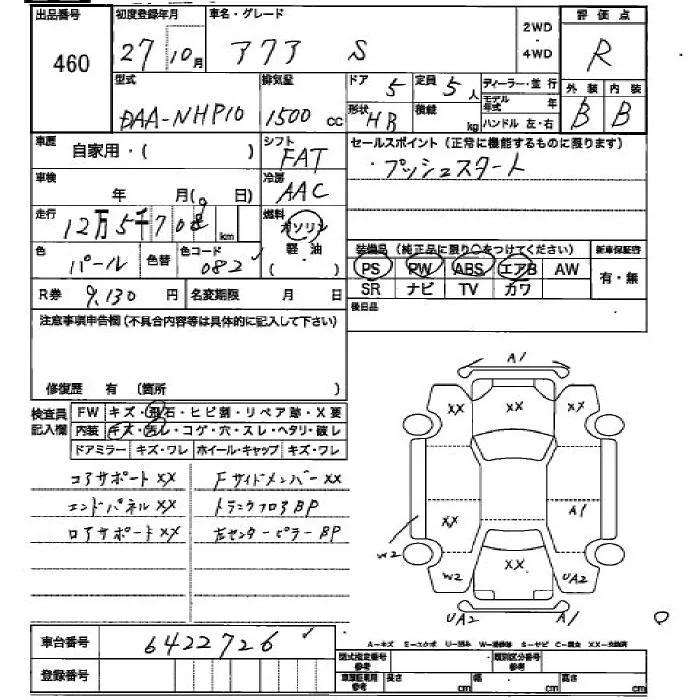 出品番号 460
初度登録年月 27 10月
車名・グレード アクア S
2WD ・ 4WD
評価点 R
型式 DAA-NHP10
排気量 1500 cc
ドア 5
定員 5人
形状 HB
積載 kg
ディーラー・並行
モデル年式 年
ハンドル 左・右
外装 B
内装 B
車歴 自家用・( )
シフト FAT
セールスポイント(正常に機能するものに限ります)
・プッシュスタート
車検 年 月( 日)
冷房 AAC
走行 12万5千708 km
燃料 ガソリン 軽油 ( )
色 パール 色替
色コード 082
装備品(純正品に限り○をつけてください)
新車保証書 有・無
PS PW ABS エアB AW
SR ナビ TV カワ
R券 9,130 円
名変期限 月 日
後日品
注意事項申告欄(不具合内容等は具体的に記入して下さい)
修復歴 有 (箇所 )
検査員記入欄
FW キズ・飛石・ヒビ割・リペア跡・X要
内装 キズ・汚レ・コゲ・穴・スレ・ヘタリ・破レ
ドアミラー キズ・ワレ ホイール・キャップ キズ・ワレ
コアサポートXX FサイドメンバーXX
エンドパネルXX トランクフロアBP
ロアサポートXX 左センターピラーBP
A1
XX XX XX
XX A1
W2 W2 XX UA2
UA2 A1
車台番号 6422726
登録番号
A-キズ E-エクボ U-凹み W-補修跡 S-サビ C-腐食 XX-交換済
型式指定番号 参考
類別区分番号 参考
車庫証明用 参考 長さ cm 幅 cm 高さ cm